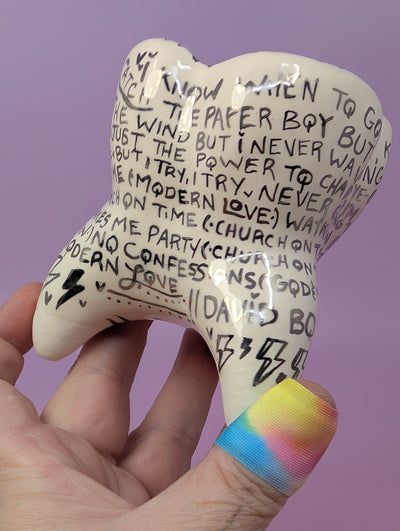 ATCH I KNOW WHEN TO GO
THE PAPER BOY BUT
THE WIND BUT i NEVER WAVING
JUST THE POWER TO CHARM
BUT I TRY, I TRY~ NEVER
ME (·MODERN LOVE·) WALK
CH ON TIME (·CHURCH ON T
ES ME PARTY (·CHURCH ON
NO CONFESSIONS (GOD
ODERN LOVE || DAVID BO